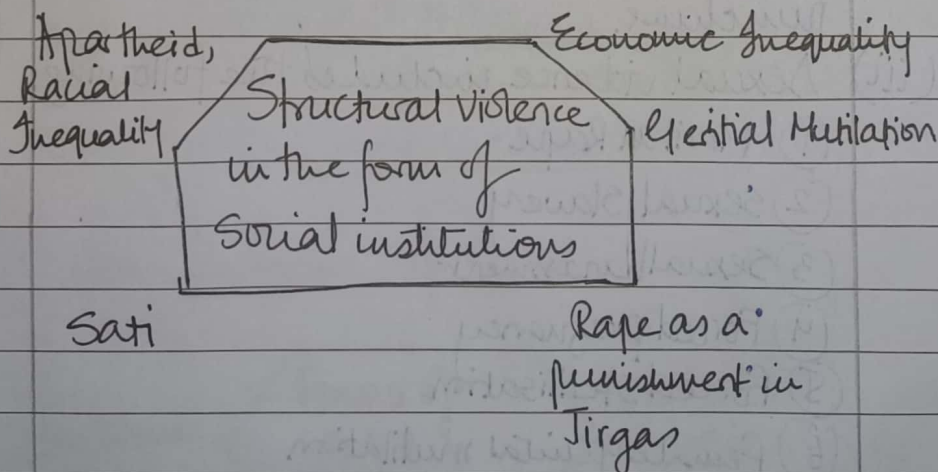 Apartheid,
Racial
Inequality
Economic Inequality
Structural Violence
in the form of
Social institutions
Genitial Mutilation
Sati
Rape as a
punishment in
Jirgas